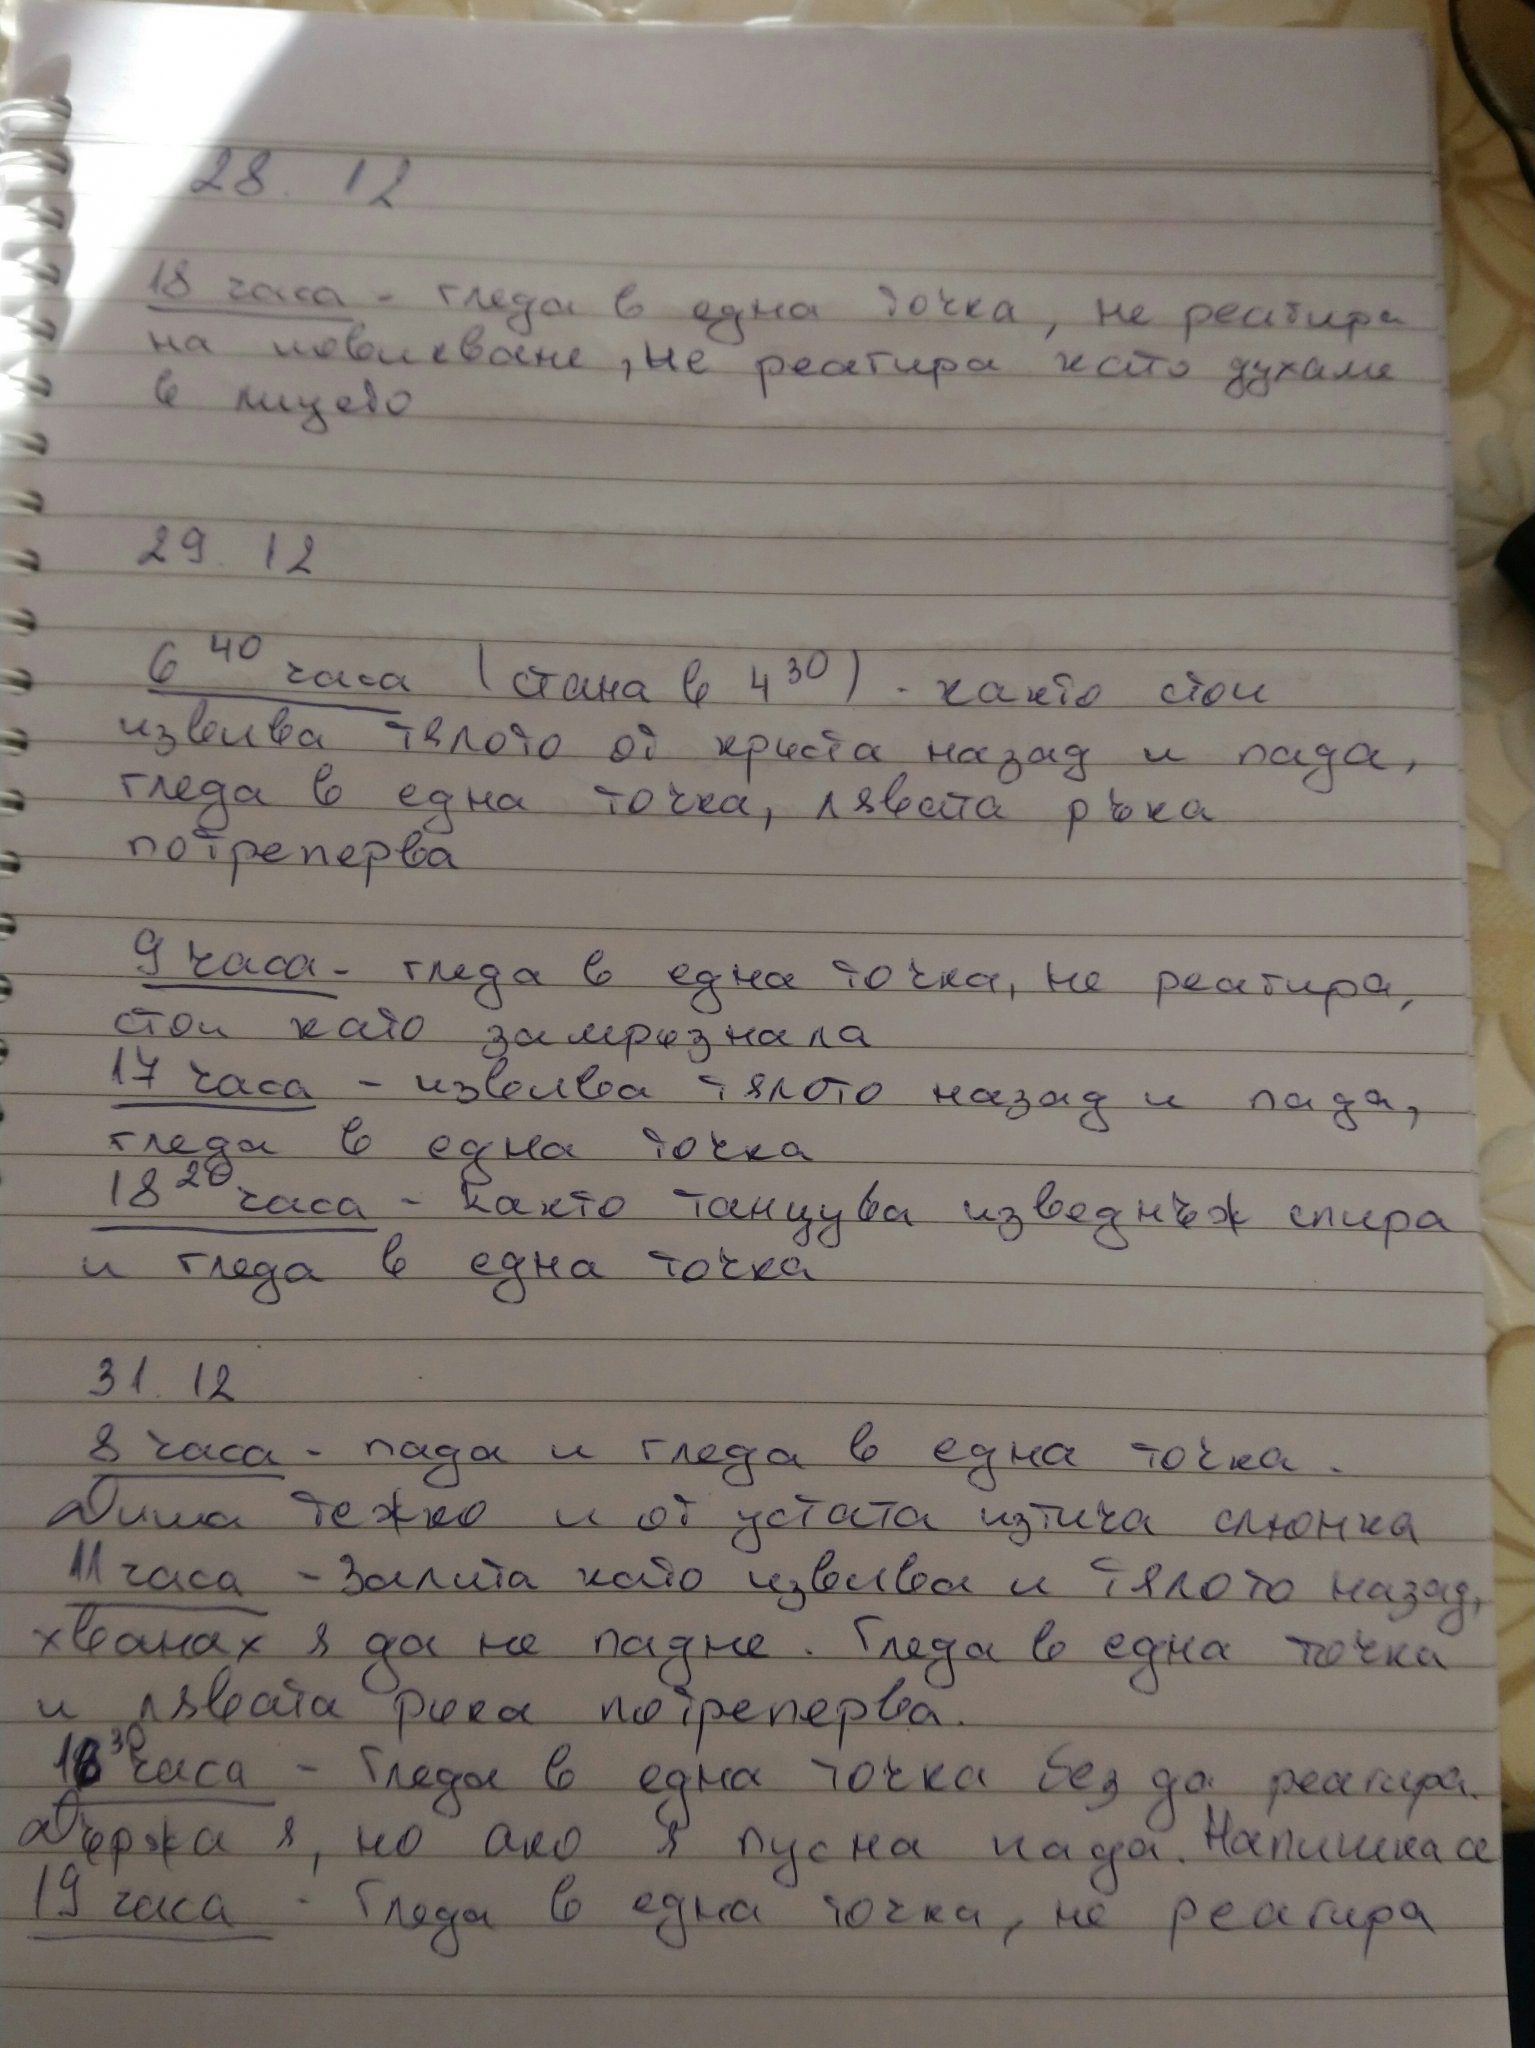 28. 12
18 часа - гледа в една точка, не реагира
на повикване, не реагира като духаме
в лицето
29. 12
6 40 часа (стана в 4 30) - както стои
извива тялото от кръста назад и пада,
гледа в една точка, лявата ръка
потреперва
9 часа - гледа в една точка, не реагира,
стои като замръзнала
17 часа - извива тялото назад и пада,
гледа в една точка
18 20 часа - Както танцува изведнъж спира
и гледа в една точка
31. 12
8 часа - пада и гледа в една точка.
Диша тежко и от устата изтича слюнка
11 часа - Залита като извива и тялото назад,
хванах я да не падне. Гледа в една точка
и лявата ръка потреперва.
30 часа - Гледа в една точка без да реагира.
Държа я, но ако я пусна пада. Напишка се
19 часа - Гледа в една точка, не реагира